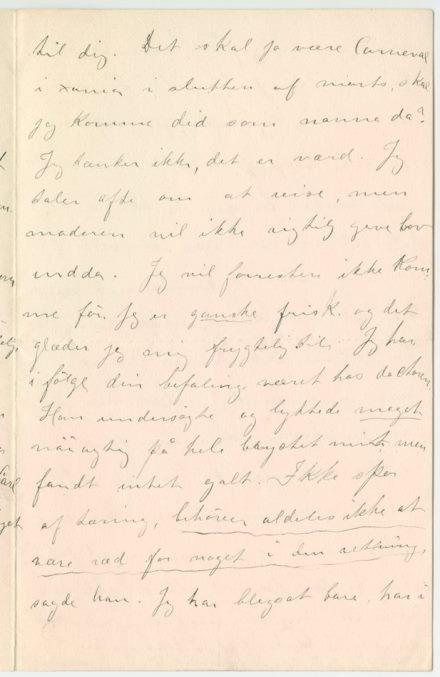 til dig. Det skal jo være Carneval
i xania i slutten af marts, skal
jeg komme did som nanna da?
Jeg tænker ikke, det er værd. Jeg
taler ofte om at reise, men
maderen vil ikke rigtig give lov
endda. Jeg vil forresten ikke kom-
me før jeg er ganske frisk. og det
glæder jeg mig frygtelig til. Jeg har
i følge din befaling været hos doctoren.
Han undersøgte og bykkede meget
nøiagtig på hele brystet mit, men
fandt intet galt. Ikke spor
af tæring, behøver aldeles ikke at
være ræd for noget i den retning,
sagde han. Jeg har blegsot bare, har i